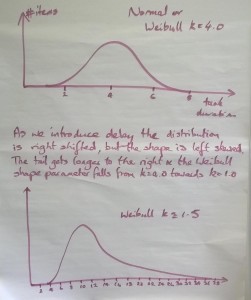 # items
Normal or
Weibull k=4.0
2 4 6 8
task
duration
As we introduce delay the distribution
is right shifted, but the shape is left skewed
The tail gets longer to the right as the Weibull
shape parameter falls from k=4.0 towards k=1.0
Weibull k≈1.5